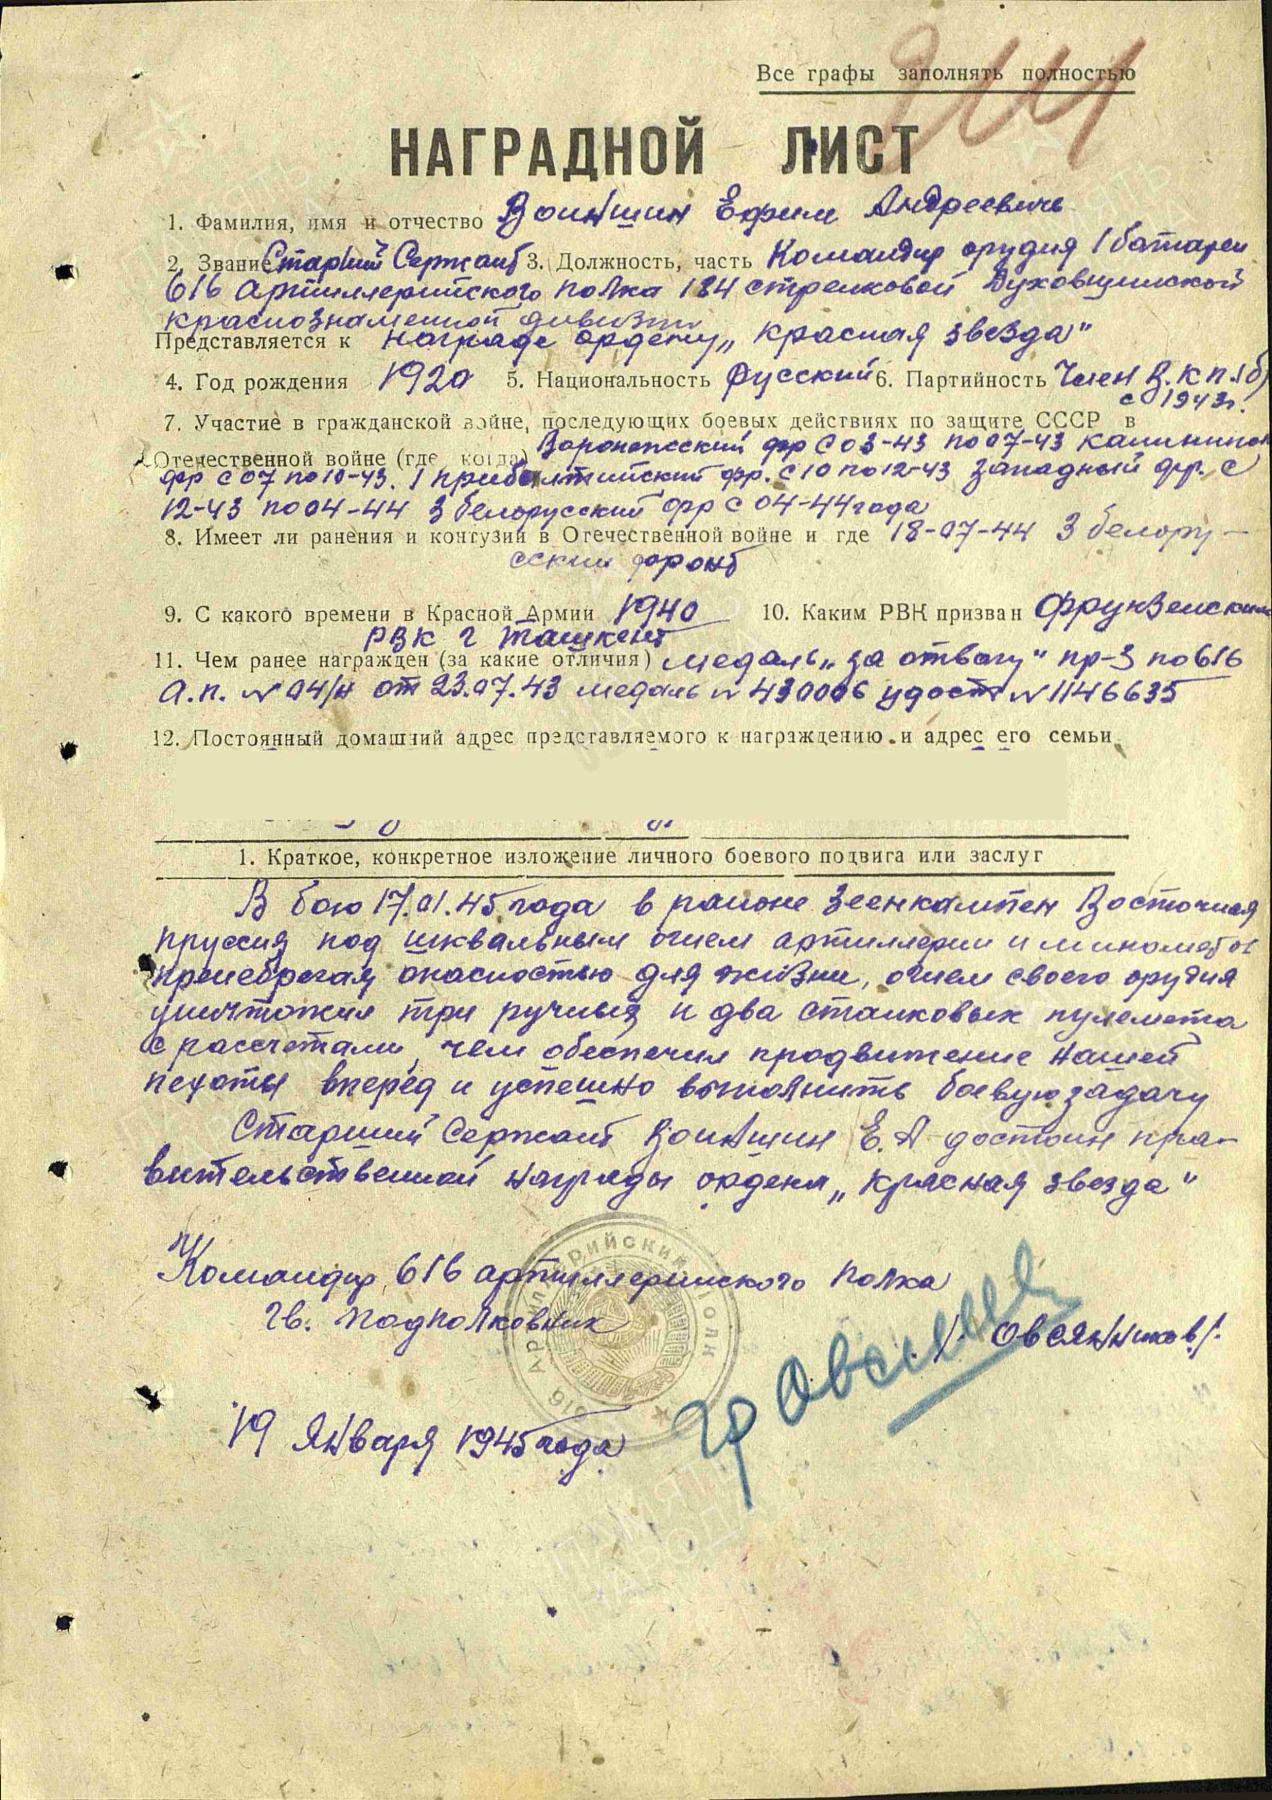 Все графы заполнять полностью
НАГРАДНОЙ ЛИСТ
1. Фамилия, имя и отчество Ефим Андреевичь
2. Звание Старший Сержант 3. Должность, часть Командир орудия 1 батареи
616 артиллерийского полка 184 стрелковой Духовщинской
краснознаменной дивизии
Представляется к награде ордену „Красная звезда"
4. Год рождения 1920 5. Национальность Русский 6. Партийность Член В.К.П.(б)
с 1943г.
7. Участие в гражданской войне, последующих боевых действиях по защите СССР в
Отечественной войне (где когда) Воронежский фр с 03-43 по 07-43 Калинин
фр с 07 по 10-43. 1 прибалтийский фр. с 10 по 12-43 Западный фр. с
12-43 по 04-44 3 белорусский фр с 04-44 года
8. Имеет ли ранения и контузии в Отечественной войне и где 18-07-44 3 белору-
сский фронт
9. С какого времени в Красной Армии 1940 10. Каким РВК призван Фрунзенским
РВК г Ташкент
11. Чем ранее награжден (за какие отличия) медаль „за отвагу" пр-з по 616
а.п. № 04/н от 23.07.43 медаль № 430006 удост № 1146635
12. Постоянный домашний адрес представляемого к награждению и адрес его семьи
1. Краткое, конкретное изложение личного боевого подвига или заслуг
В бою 17.01.45 года в районе Зеенкампен Восточная
пруссия под шквальным огнем артиллерии и минометов
пренебрегая опасностью для жизни, огнем своего орудия
уничтожил три ручных и два станковых пулемета
с рассчетами, чем обеспечил продвижение нашей
пехоты вперед и успешно выполнить боевую задачу
Старший Сержант Е.А достоин пра-
вительственной награды ордена „Красная звезда"
Командир 616 артиллерийского полка
гв. подполковник / Овсянников /.
616 АРТИЛЛЕРИЙСКИЙ ПОЛК
19 Января 1945 года
ПАМЯТЬ НАРОДА